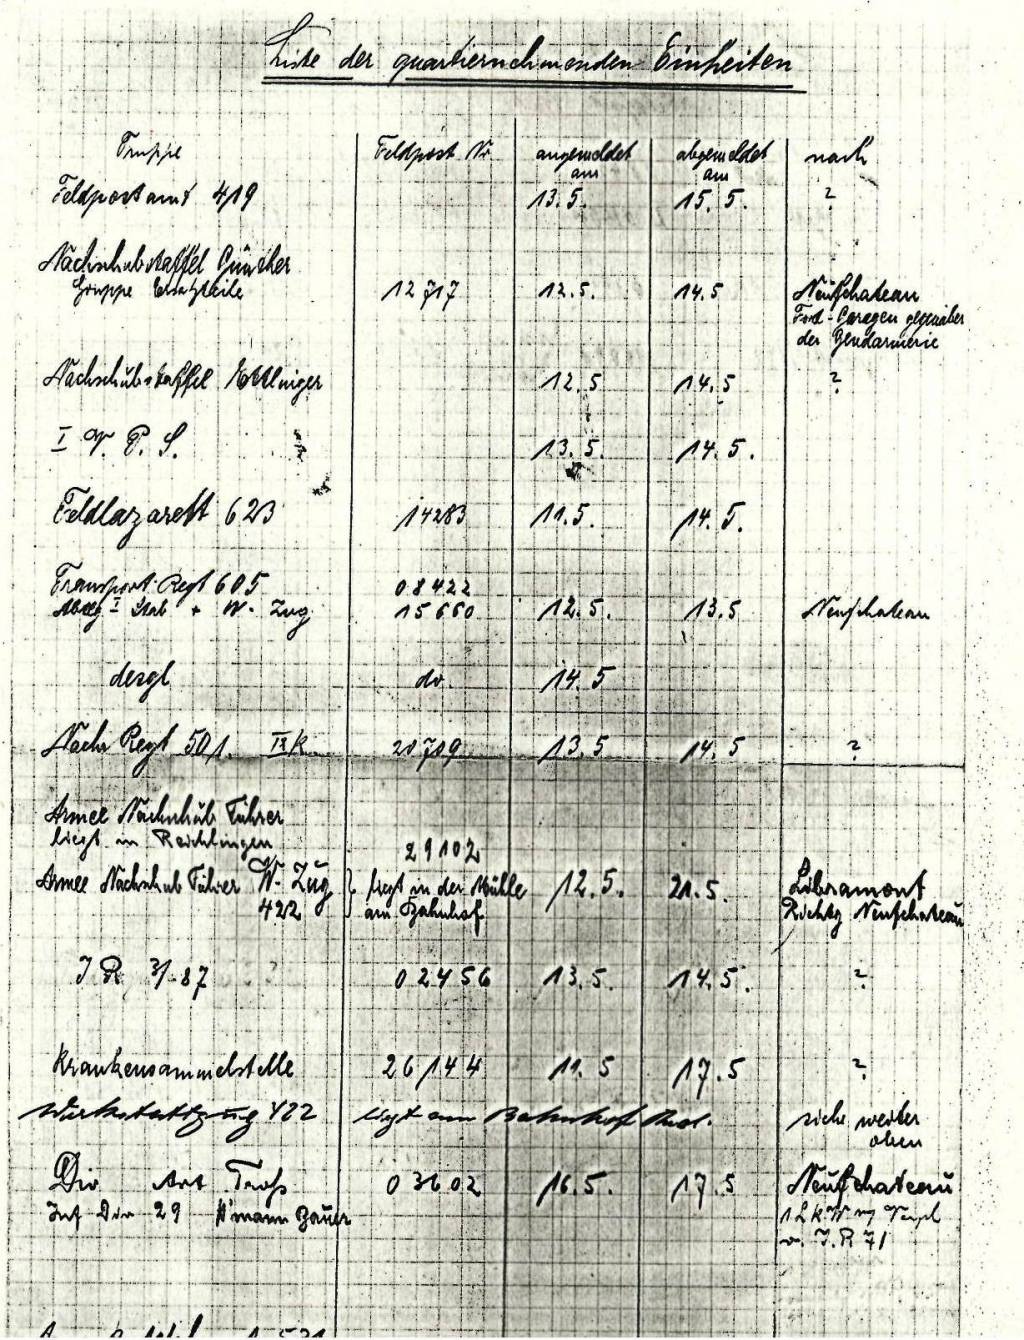 Liste der quartiernehmenden Einheiten
Truppe Feldpost Nr angemeldet am abgemeldet am nach
Feldpostamt 419 13.5. 15.5. ?
Nachschubstaffel Günther
Gruppe Ersatzteile 12717 12.5. 14.5 Neufchateau
gegenüber
der Gendarmerie
Nachschubstaffel Ettlinger 12.5 14.5 ?
I V. P. S. 13.5. 14.5.
Feldlazarett 623 14283 11.5. 14.5.
Transport-Regt 605 08422
Stab + W. Zug 15660 12.5. 13.5 Neufchateau
desgl do. 14.5
Nachr Regt 501. 20709 13.5 14.5 ?
Armee Nachschub Führer
liegt in Reichlingen 29102
Armee Nachschub Führer W. Zug liegt in der Mühle 12.5. 21.5. Libramont
422 am Bahnhof Richtg Neufchateau
J R 3/87 02456 13.5. 14.5. ?
Krankensammelstelle 26144 11.5 17.5 ?
Werkstattzug 422 liegt am Bahnhof siehe weiter
oben
Div Art Troß 03602 16.5. 17.5 Neufchateau
Inf Div 29 H'mann Bauer 1 LKW
v. J.R 71